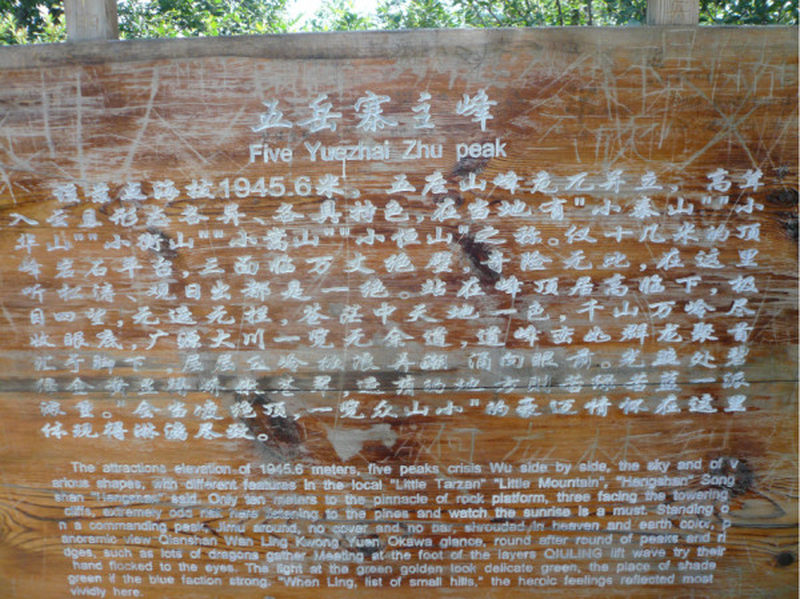 五岳寨主峰
Five Yuezhai Zhu peak
海拔1945.6米。五座山峰危兀并立，高耸
入云且形态各异、各具特色，在当地有"小泰山""小
华山""小衡山""小嵩山""小恒山"之称。仅十几米的顶
峰岩石平台，三面临万丈绝壁，奇险无比，在这里
听松涛、观日出都是一绝。站在峰顶居高临下，极
目四望，无遮无拦，苍茫中天地一色，千山万岭尽
收眼底，广海大川一览无余道，道峰峦如群龙聚首
汇于脚下，层层丘岭 涌向眼前。光 处碧

会当凌绝顶，一览众山小"的豪迈情怀在这里
体现得淋漓尽致。
The attractions elevation of 1945.6 meters, five peaks crisis Wu side by side, the sky and of v
arious shapes, with different features in the local "Little Tarzan" "Little Mountain", "Hengshan" Song
shan "Hengshan" said. Only ten meters to the pinnacle of rock platform, three facing the towering
cliffs, extremely odd risk here listening to the pines and watch the sunrise is a must. Standing o
n a commanding peak, Jimu around, no cover and no bar, shrouded in heaven and earth color, p
anoramic view Qianshan Wan Ling Kwong Yuen Okawa glance, round after round of peaks and ri
dges, such as lots of dragons gather Meeting at the foot of the layers QIULING lift wave try their
hand flocked to the eyes. The light at the green golden look delicate green, the place of shade
green if the blue faction strong. "When Ling, list of small hills," the heroic feelings reflected most
vividly here.